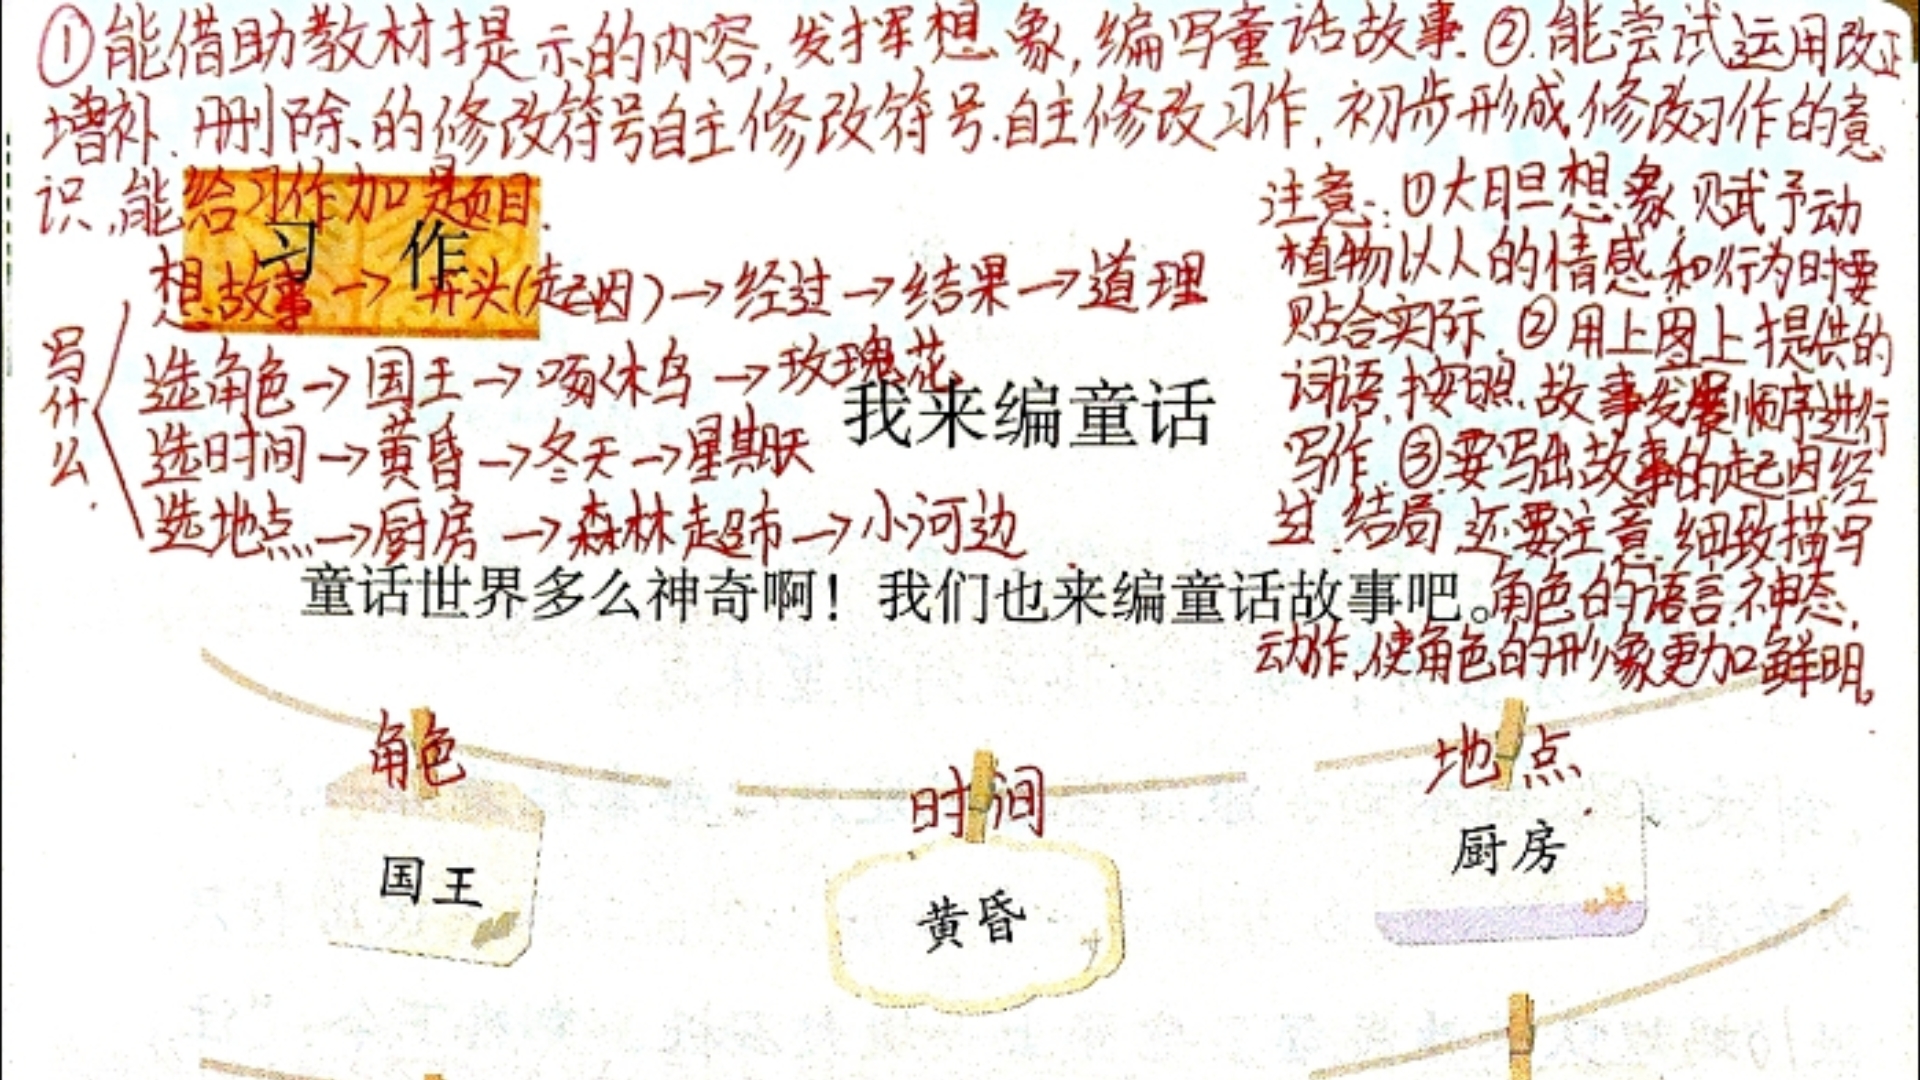 ①能借助教材提示的内容,发挥想象,编写童话故事.②.能尝试运用改正
增补、删除、的修改符号自主修改符号.自主修改习作,初步形成修改习作的意
识,能给习作加题目.
习 作
想故事→开头(起因)→经过→结果→道理
写什么
选角色→国王→啄木鸟→玫瑰花
选时间→黄昏→冬天→星期天
选地点→厨房→森林超市→小河边
注意:①大胆想象,赋予动
植物以人的情感和行为时要
贴合实际,②用上图上提供的
词语,按照故事发展顺序进行
写作.③要写出故事的起因经
过、结局,还要注意细致描写
角色的语言、神态,
动作,使角色的形象更加鲜明。
我来编童话
童话世界多么神奇啊!我们也来编童话故事吧。
角色
时间
地点
国王
黄昏
厨房